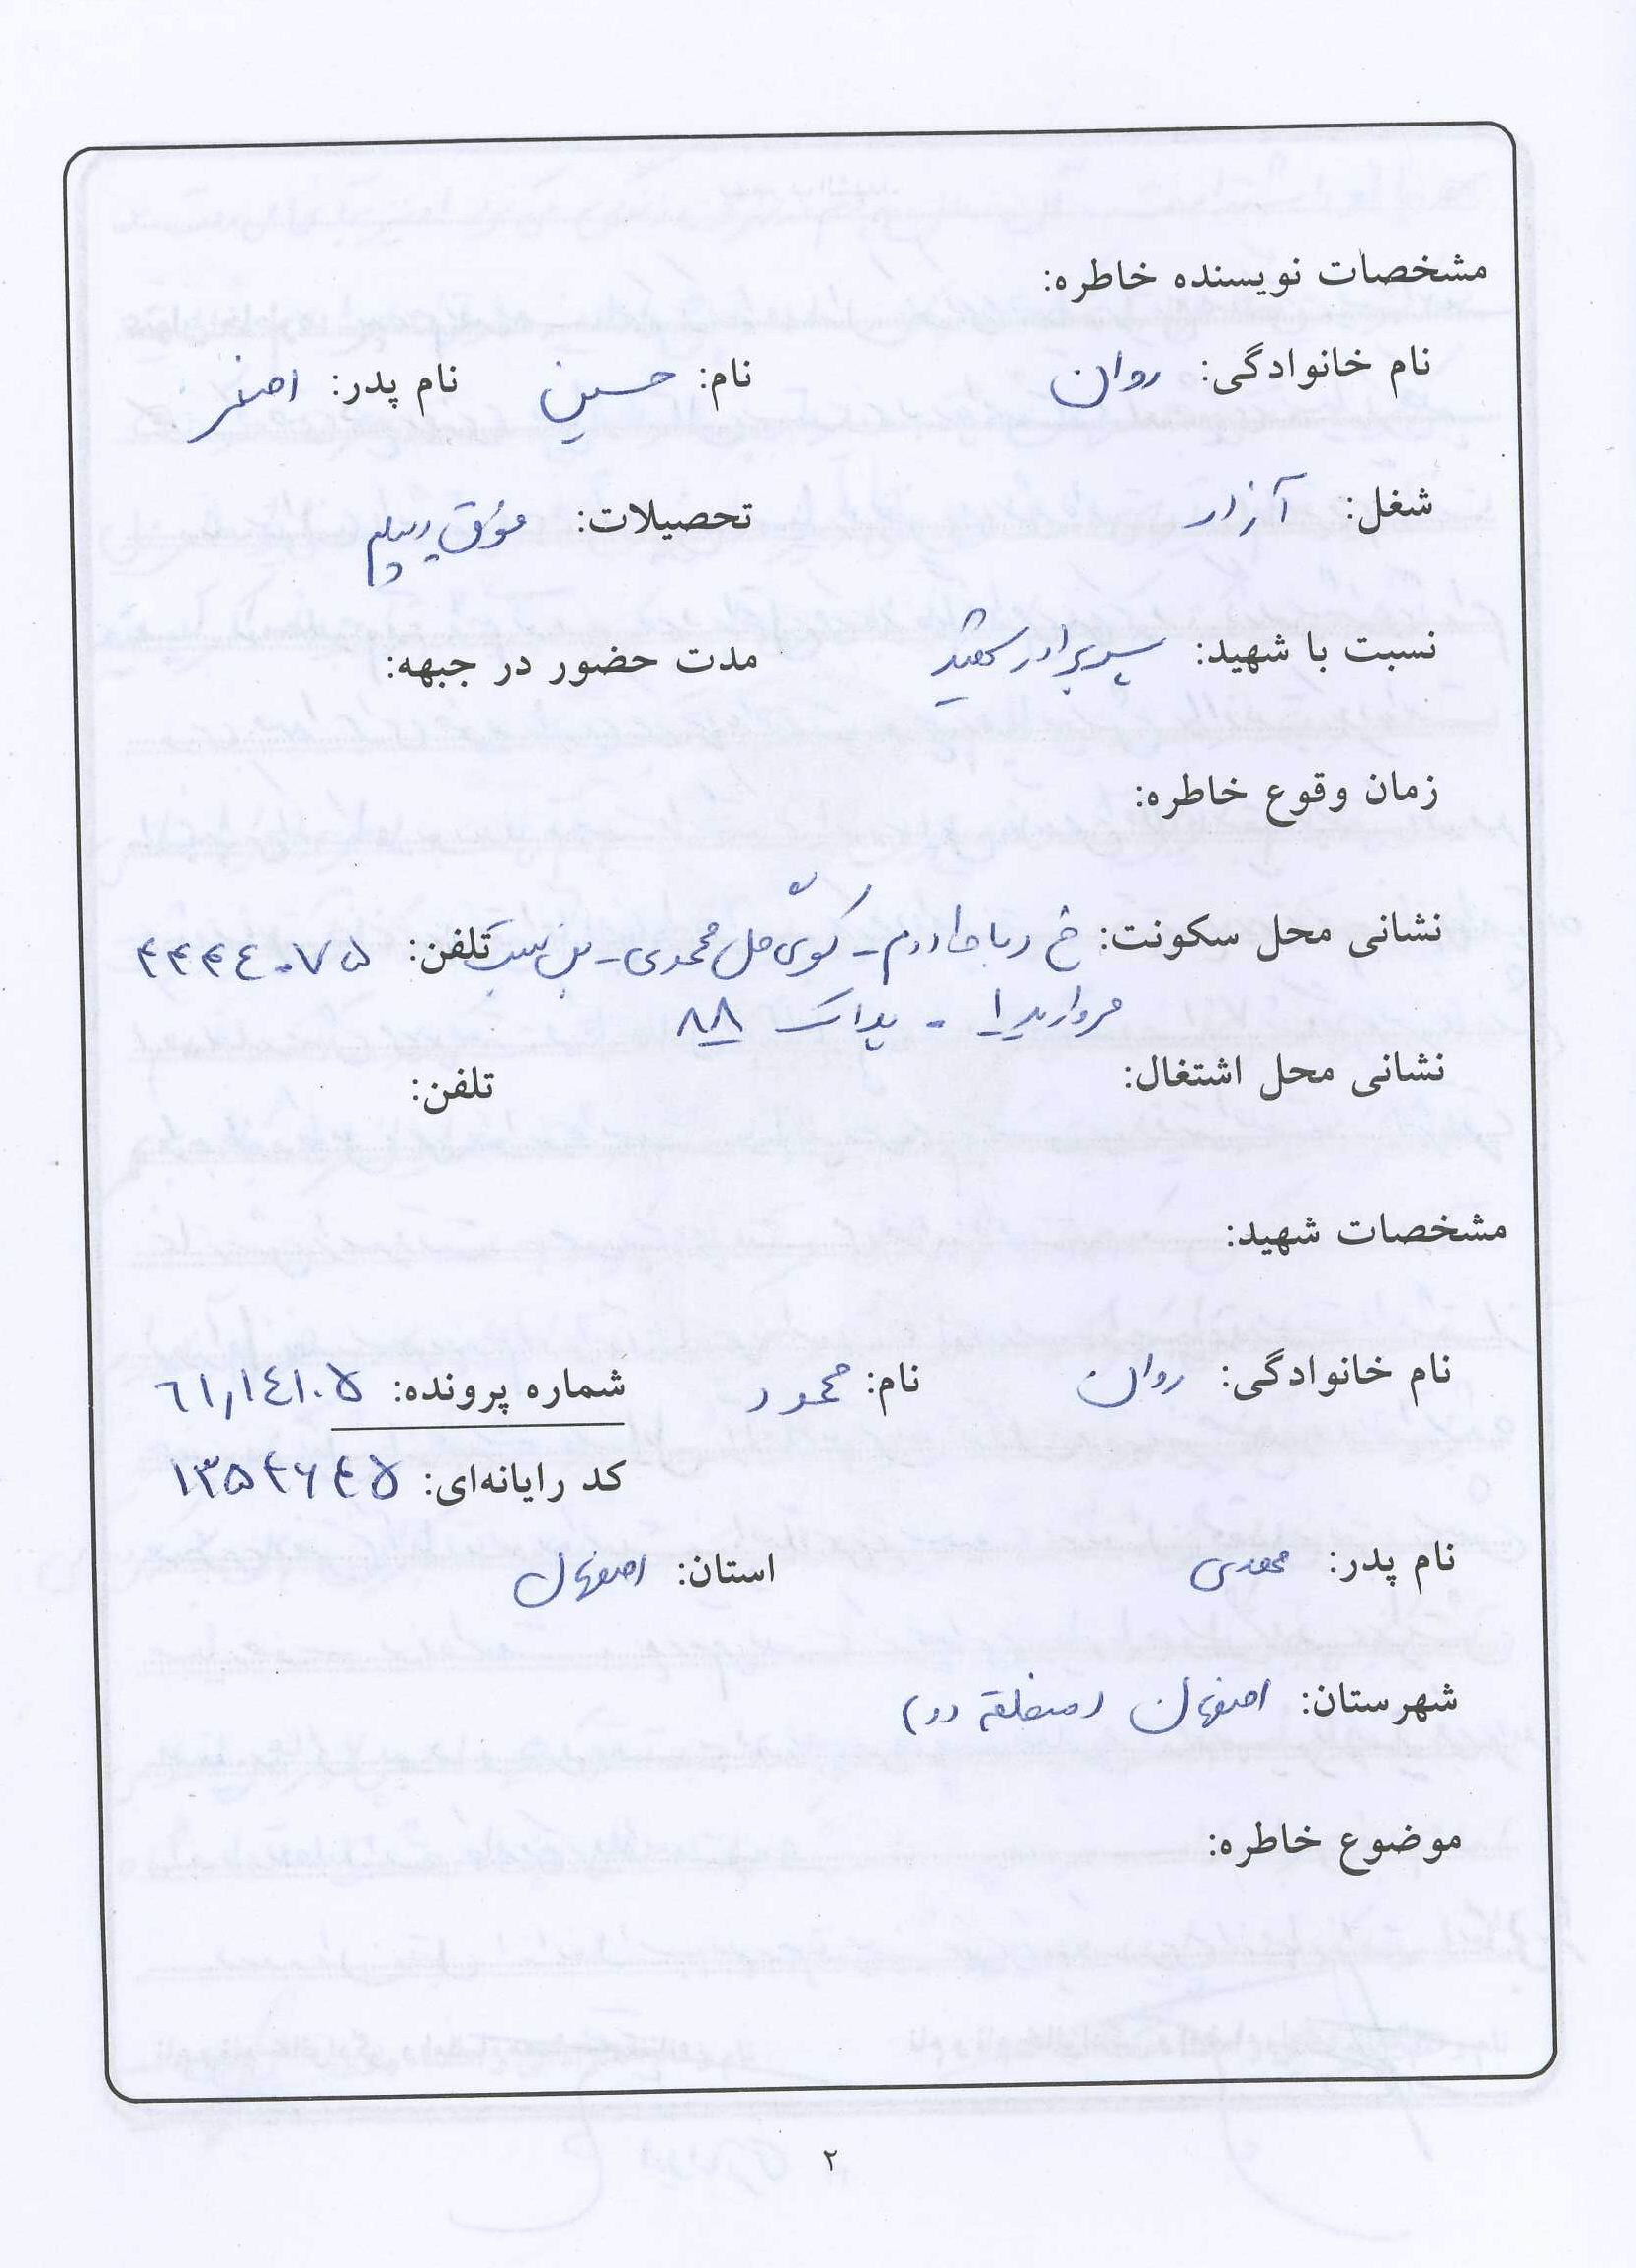 مشخصات نویسنده خاطره:
نام خانوادگی: روان نام: حسین نام پدر: اصغر
شغل: آزاد تحصیلات: فوق دیپلم
نسبت با شهید: پسر برادر شهید مدت حضور در جبهه:
زمان وقوع خاطره:
نشانی محل سکونت: خ رباط دوم - کوی گل محمدی - بن بست تلفن: ۴۴۴۴۰۷۵
مروارید ۱ - پلاک ۸۸
نشانی محل اشتغال: تلفن:
مشخصات شهید:
نام خانوادگی: روان نام: محمود شماره پرونده: ۶۱٫۱۴۱۰۵
کد رایانه‌ای: ۱۳۵۴۶۴۵
نام پدر: مهدی استان: اصفهان
شهرستان: اصفهان (منطقه دو)
موضوع خاطره:
۲